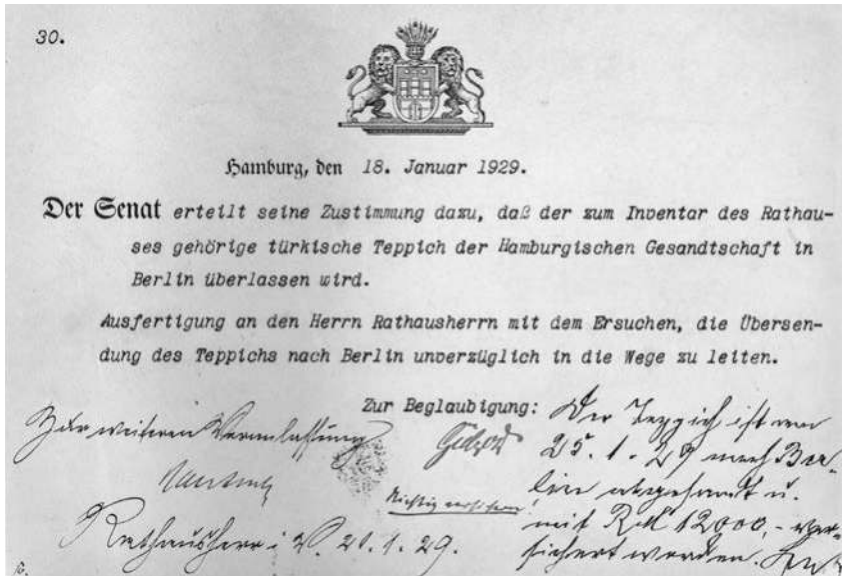 30.
Hamburg, den 18. Januar 1929.
Der Senat erteilt seine Zustimmung dazu, daß der zum Inventar des Rathau-
ses gehörige türkische Teppich der Hamburgischen Gesandtschaft in
Berlin überlassen wird.
Ausfertigung an den Herrn Rathausherrn mit dem Ersuchen, die Übersen-
dung des Teppichs nach Berlin unverzüglich in die Wege zu leiten.
Zur Beglaubigung:
Zur weiteren Veranlassung
Rathausherr i. V. 21.1.29.
Der Teppich ist am
25.1.29 nach Ber-
lin abgesandt u.
mit RM 12000,- ver-
sichert worden.